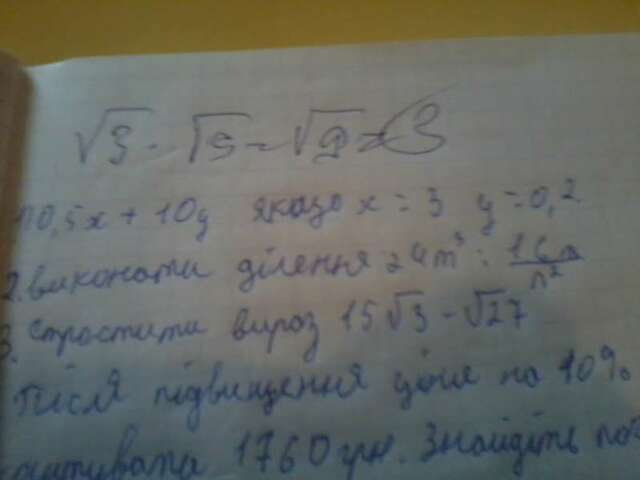 √3 · √3 = √9 = 3
1) 0,5x + 10y якщо x = 3 y = 0,2
2. виконати ділення 24m³ :
3. спростити вираз 15√3 - √27
Після підвищення ціни на 10%
1760 грн. Знайдіть